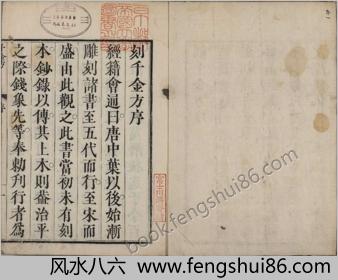 刻千金方序
經籍會通曰唐中葉以後始漸
雕刻諸書至五代而行至宋而
盛由此觀之此書當初未有刻
本鈔錄以傳其上木則葢治平
之際錢象先等奉勅刊行者爲
book.fengshui86.com
风水八六 www.fengshui86.com